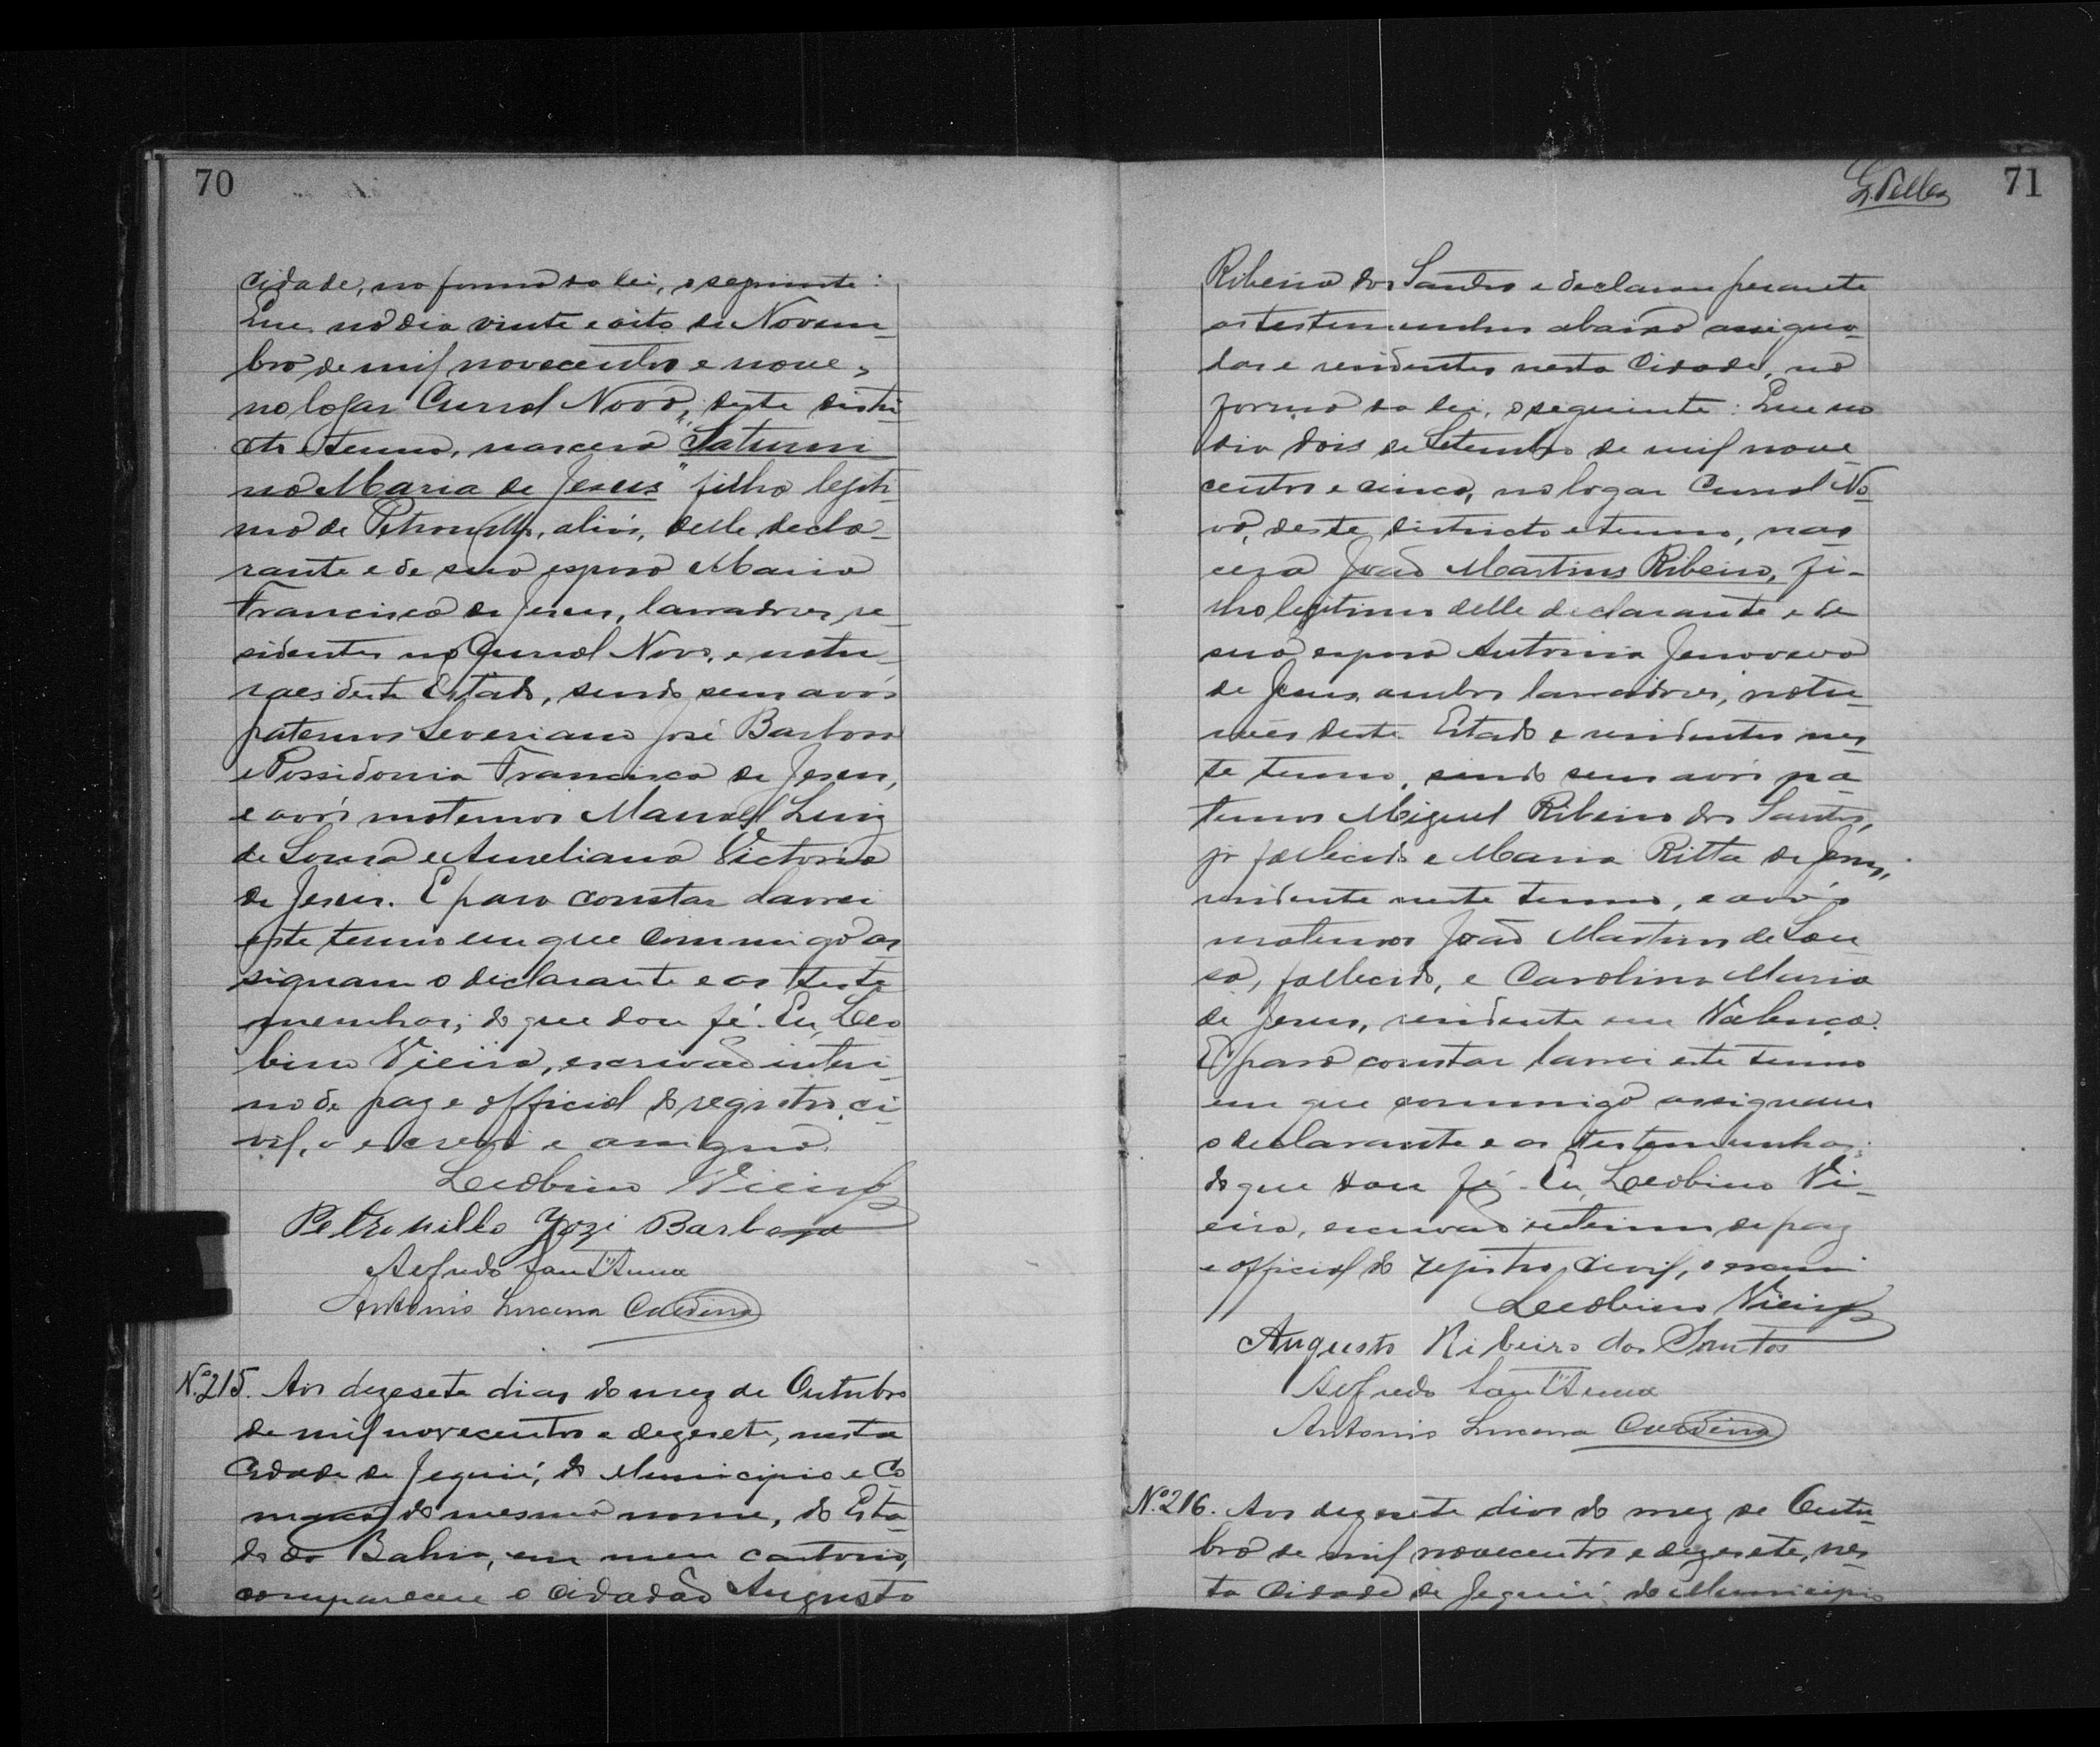 70
cidade, na forma da lei, o seguinte:
Que no dia vinte e oito de Novem-
bro de mil novecentos e nove,
no logar Curral Novo, deste distri-
cto e termo, nascera "Saturni
na Maria de Jesus" filha legiti-
ma de Petronillo, aliás, delle decla-
rante e de sua esposa Maria
Francisca de Jesus, lavradores re-
sidentes no Curral Novo, e natu-
raes deste Estado, sendo seus avós
paternos Severiano José Barbosa
e Possidonia Francisca de Jesus,
e avós maternos Manoel Luiz
de Sousa e Aureliana Victoria
de Jesus. E para constar lavrei
este termo em que commigo as
signam o declarante e as teste
munhas; do que dou fé. Eu, Leo
bino Vieira, escrivão interi-
no de paz e official do registro ci-
vil, o escrevi e assigno.
Leobino Vieira
Petronillo Jozé Barboza
Alfredo Sant'Anna
Antonio Lucena
Nº 215. Aos dezesete dias do mez de Outubro
de mil novecentos e dezesete, nesta
Cidade de Jequié, do Municipio e Co
marca do mesmo nome, do Esta-
do da Bahia, em meu cartorio,
compareceu o cidadão Augusto
71
Ribeiro dos Santos e declarou perante
as testemunhas abaixo assigna-
das e residentes nesta Cidade, na
forma da lei, o seguinte: Que no
dia dois de Setembro de mil nove-
centos e cinco, no logar Curral No-
vo, deste districto e termo, nas
cera João Martins Ribeiro, fi-
lho legitimo delle declarante e de
sua esposa Antonia Jenoveva
de Jesus, ambos lavradores, natu-
raes deste Estado e residentes nes-
te termo, sendo seus avós pa-
ternos Miguel Ribeiro dos Santos,
já fallecido e Maria Ritta de Jesus,
residente neste termo, e avós
maternos João Martins de Sou
sa, fallecido, e Carolina Maria
de Jesus, residente em Valença.
E para constar lavrei este termo
em que commigo assignam
o declarante e as testemunhas;
do que dou fé. Eu, Leobino Vi-
eira, escrivão interino de paz
e official do registro civil, o escrevi
Leobino Vieira
Augusto Ribeiro dos Santos
Alfredo Sant'Anna
Antonio Lucena
Nº 216. Aos dezesete dias do mez de Outu-
bro de mil novecentos e dezesete, nes-
ta Cidade de Jequié, do Municipio